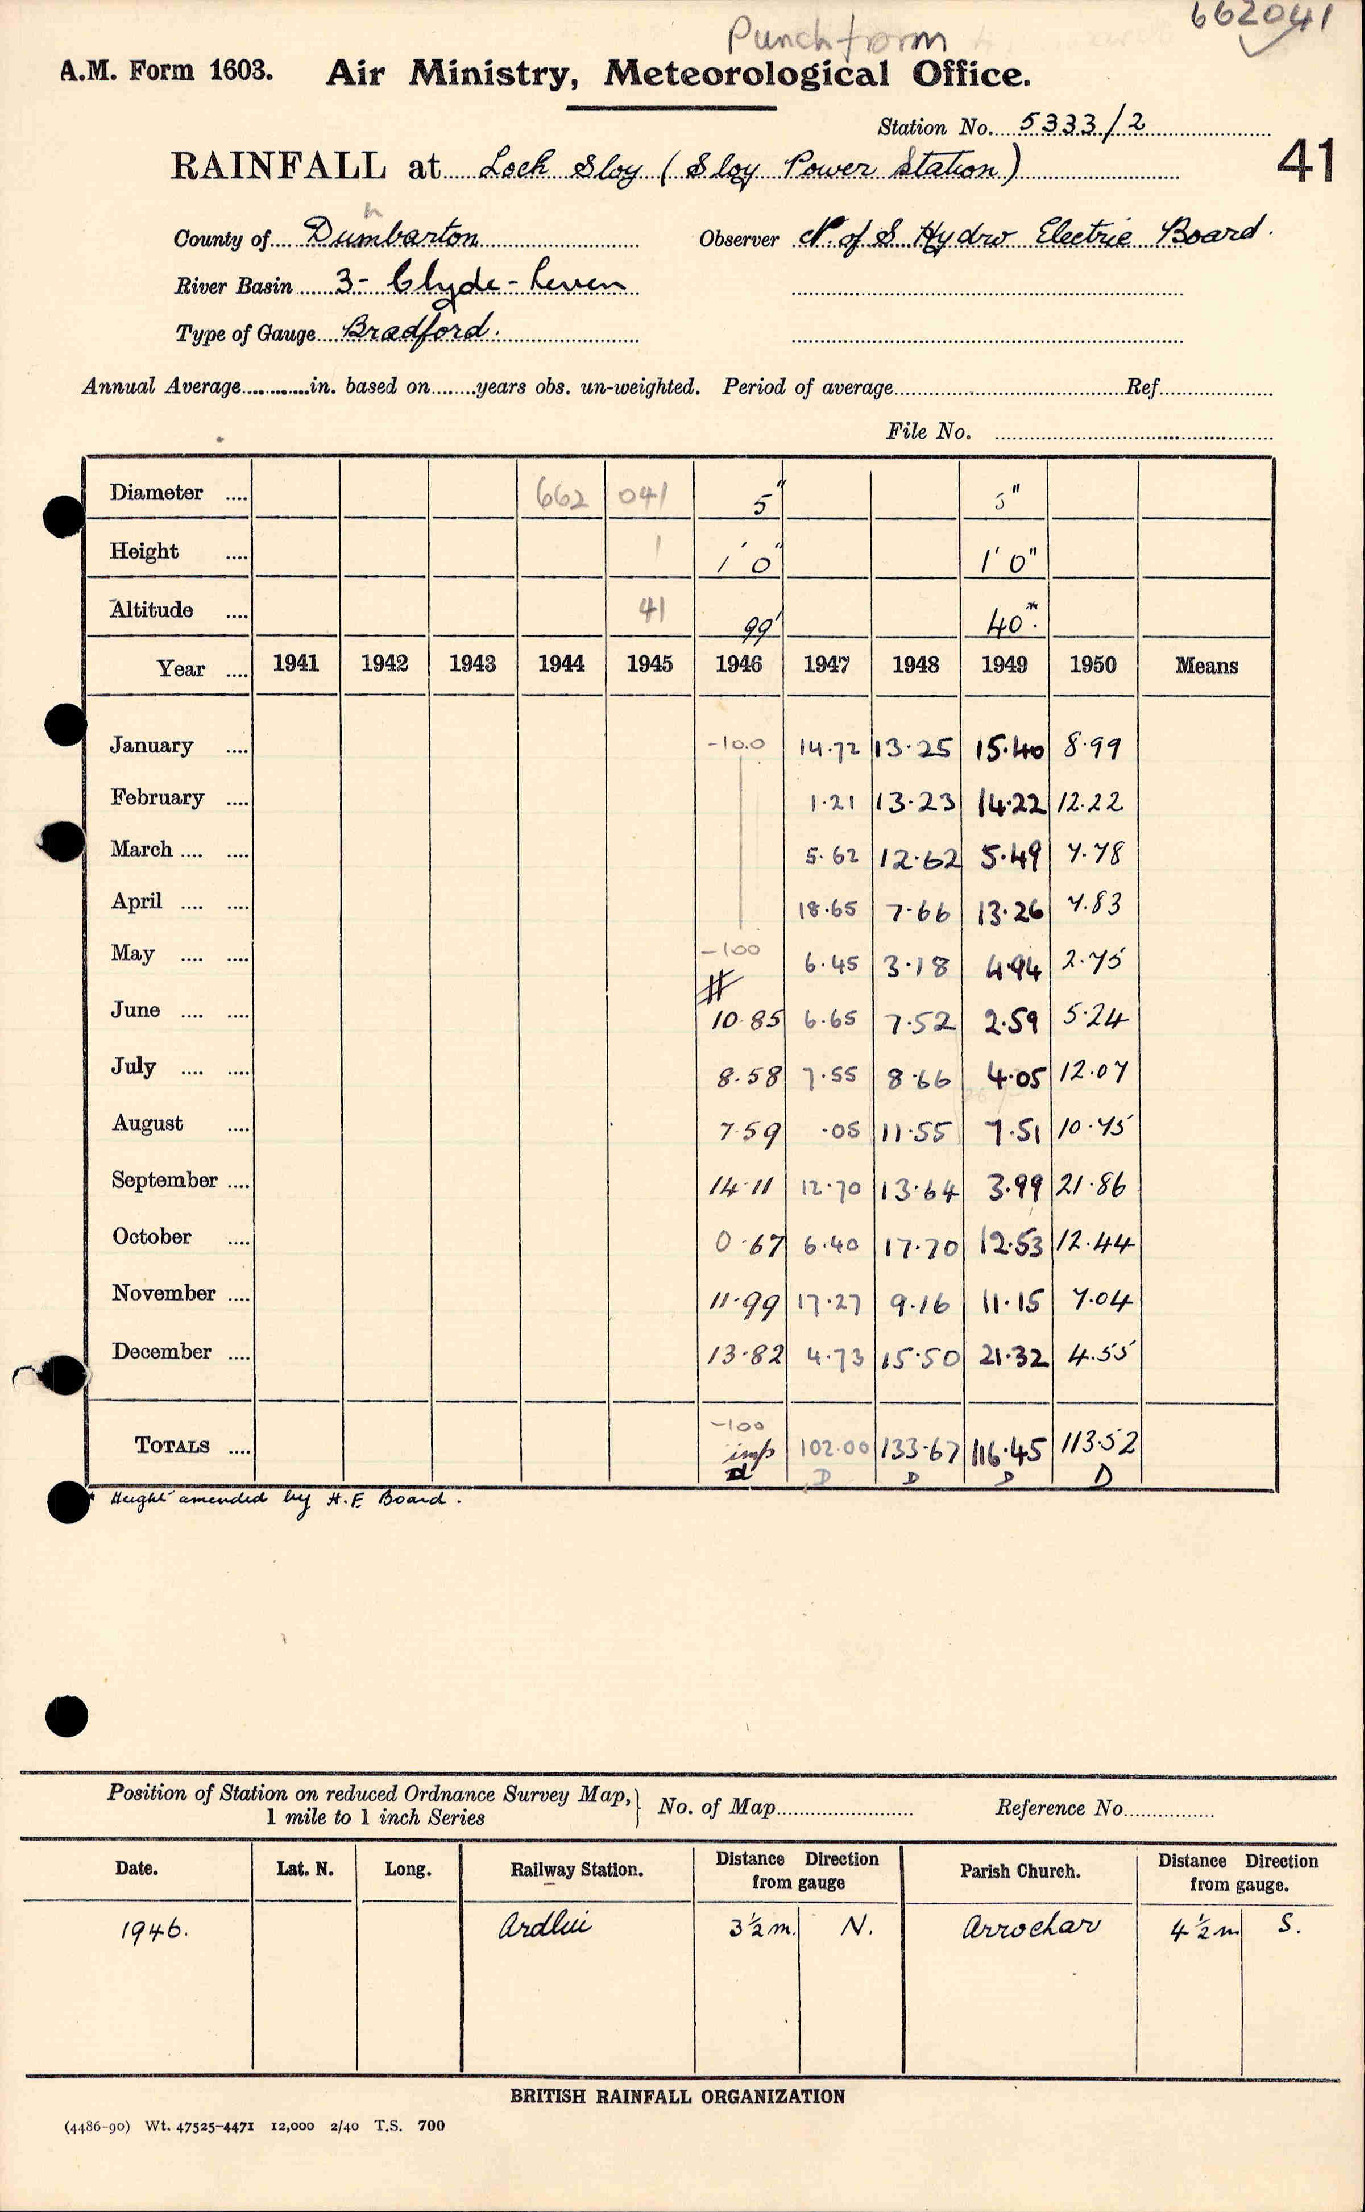 Punch form
662041
A.M. Form 1603. Air Ministry, Meteorological Office.
Station No. 5333/2
41
RAINFALL at Loch Sloy (Sloy Power Station)
County of Dumbarton Observer N. of S Hydro Electric Board.
n
River Basin 3- Clyde-Leven
Type of Gauge Bradford.
Annual Average............in. based on.......years obs. un-weighted. Period of average Ref.
File No.
Diameter .... 662 041 5" 5"
Height .... 1 1' 0" 1' 0"
Altitude .... 41 99' 40*.
Year .... 1941 1942 1943 1944 1945 1946 1947 1948 1949 1950 Means
January .... -100 14.72 13.25 15.40 8.99
February .... 1.21 13.23 14.22 12.22
March .... .... 5.62 12.62 5.49 7.78
April .... .... 18.65 7.66 13.26 7.83
May .... .... -100 6.45 3.18 4.94 2.75
June .... .... # 10.85 6.65 7.52 2.59 5.24
July .... .... 8.58 7.55 8.66 4.05 12.07
August .... 7.59 .05 11.55 7.51 10.75
September .... 14.11 12.70 13.64 3.99 21.86
October .... 0.67 6.40 17.70 12.53 12.44
November .... 11.99 17.27 9.16 11.15 7.04
December .... 13.82 4.73 15.50 21.32 4.55
-100
TOTALS .... imp 102.00 133.67 116.45 113.52
D D D D D
* Height amended by H.E Board.
Position of Station on reduced Ordnance Survey Map, } No. of Map Reference No.
1 mile to 1 inch Series
Date. Lat. N. Long. Railway Station. Distance Direction from gauge Parish Church. Distance Direction from gauge.
1946. Ardlui 3½ m. N. Arrochar 4½ m S.
BRITISH RAINFALL ORGANIZATION
(4486-90) Wt. 47525-4471 12,000 2/40 T.S. 700